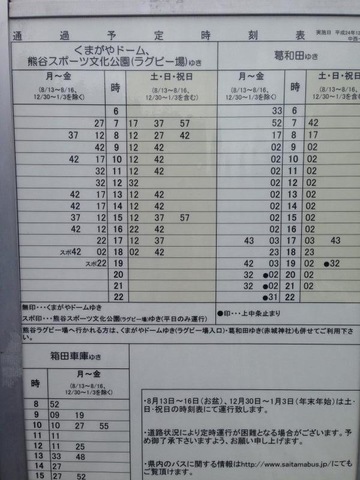 通過予定時刻表
実施日 平成24年12
くまがやドーム、
熊谷スポーツ文化公園(ラグビー場)ゆき
葛和田ゆき
月〜金 時 土・日・祝日 月〜金 時 土・日・祝日
(8/13〜8/16、12/30〜1/3を除く) (8/13〜8/16、12/30〜1/3を含む) (8/13〜8/16、12/30〜1/3を除く)
6 33 6
27 7 17 37 57 52 7 42
37 12 8 12 27 42 17 8 17
42 9 12 42 02 9 02
42 10 12 42 02 10 02
32 11 12 42 02 11 02
32 12 32 02 12 02
42 13 12 42 02 13 02
42 14 12 42 02 14 02
37 12 15 12 37 57 02 15 02
42 16 22 42 02 16 02
42 17 12 37 43 03 17 03 43
スポ42 02 18 02 23 18 23
スポ22 19 42 03 19 02 ●32
20 32 ●02 20
21 32 ●02 21
22 ●31 22
無印・・・くまがやドームゆき
スポ印・・・熊谷スポーツ文化公園(ラグビー場)ゆき(平日のみ運行)
●印・・・上中条止まり
熊谷ラグビー場へ行かれる方は、くまがやドームゆき(ラグビー場入口)・葛和田ゆき(赤城神社)も併せてご利用下さい。
箱田車庫ゆき
時 月〜金
(8/13〜8/16、12/30〜1/3を除く)
8 52
9 09 19
10 10 27 55
11 11
12 11 25
13 33 48
14 27
15 27 52
・8月13日〜16日(お盆)、12月30日〜1月3日(年末年始)は土・日・祝日の時刻表にて運行致します。
・道路状況により定時運行が困難となる場合がございます。予め御了承下さいますよう、お願い申し上げます。
・県内のバスに関する情報はhttp://www.saitamabus.jp/にてもご覧頂けます。